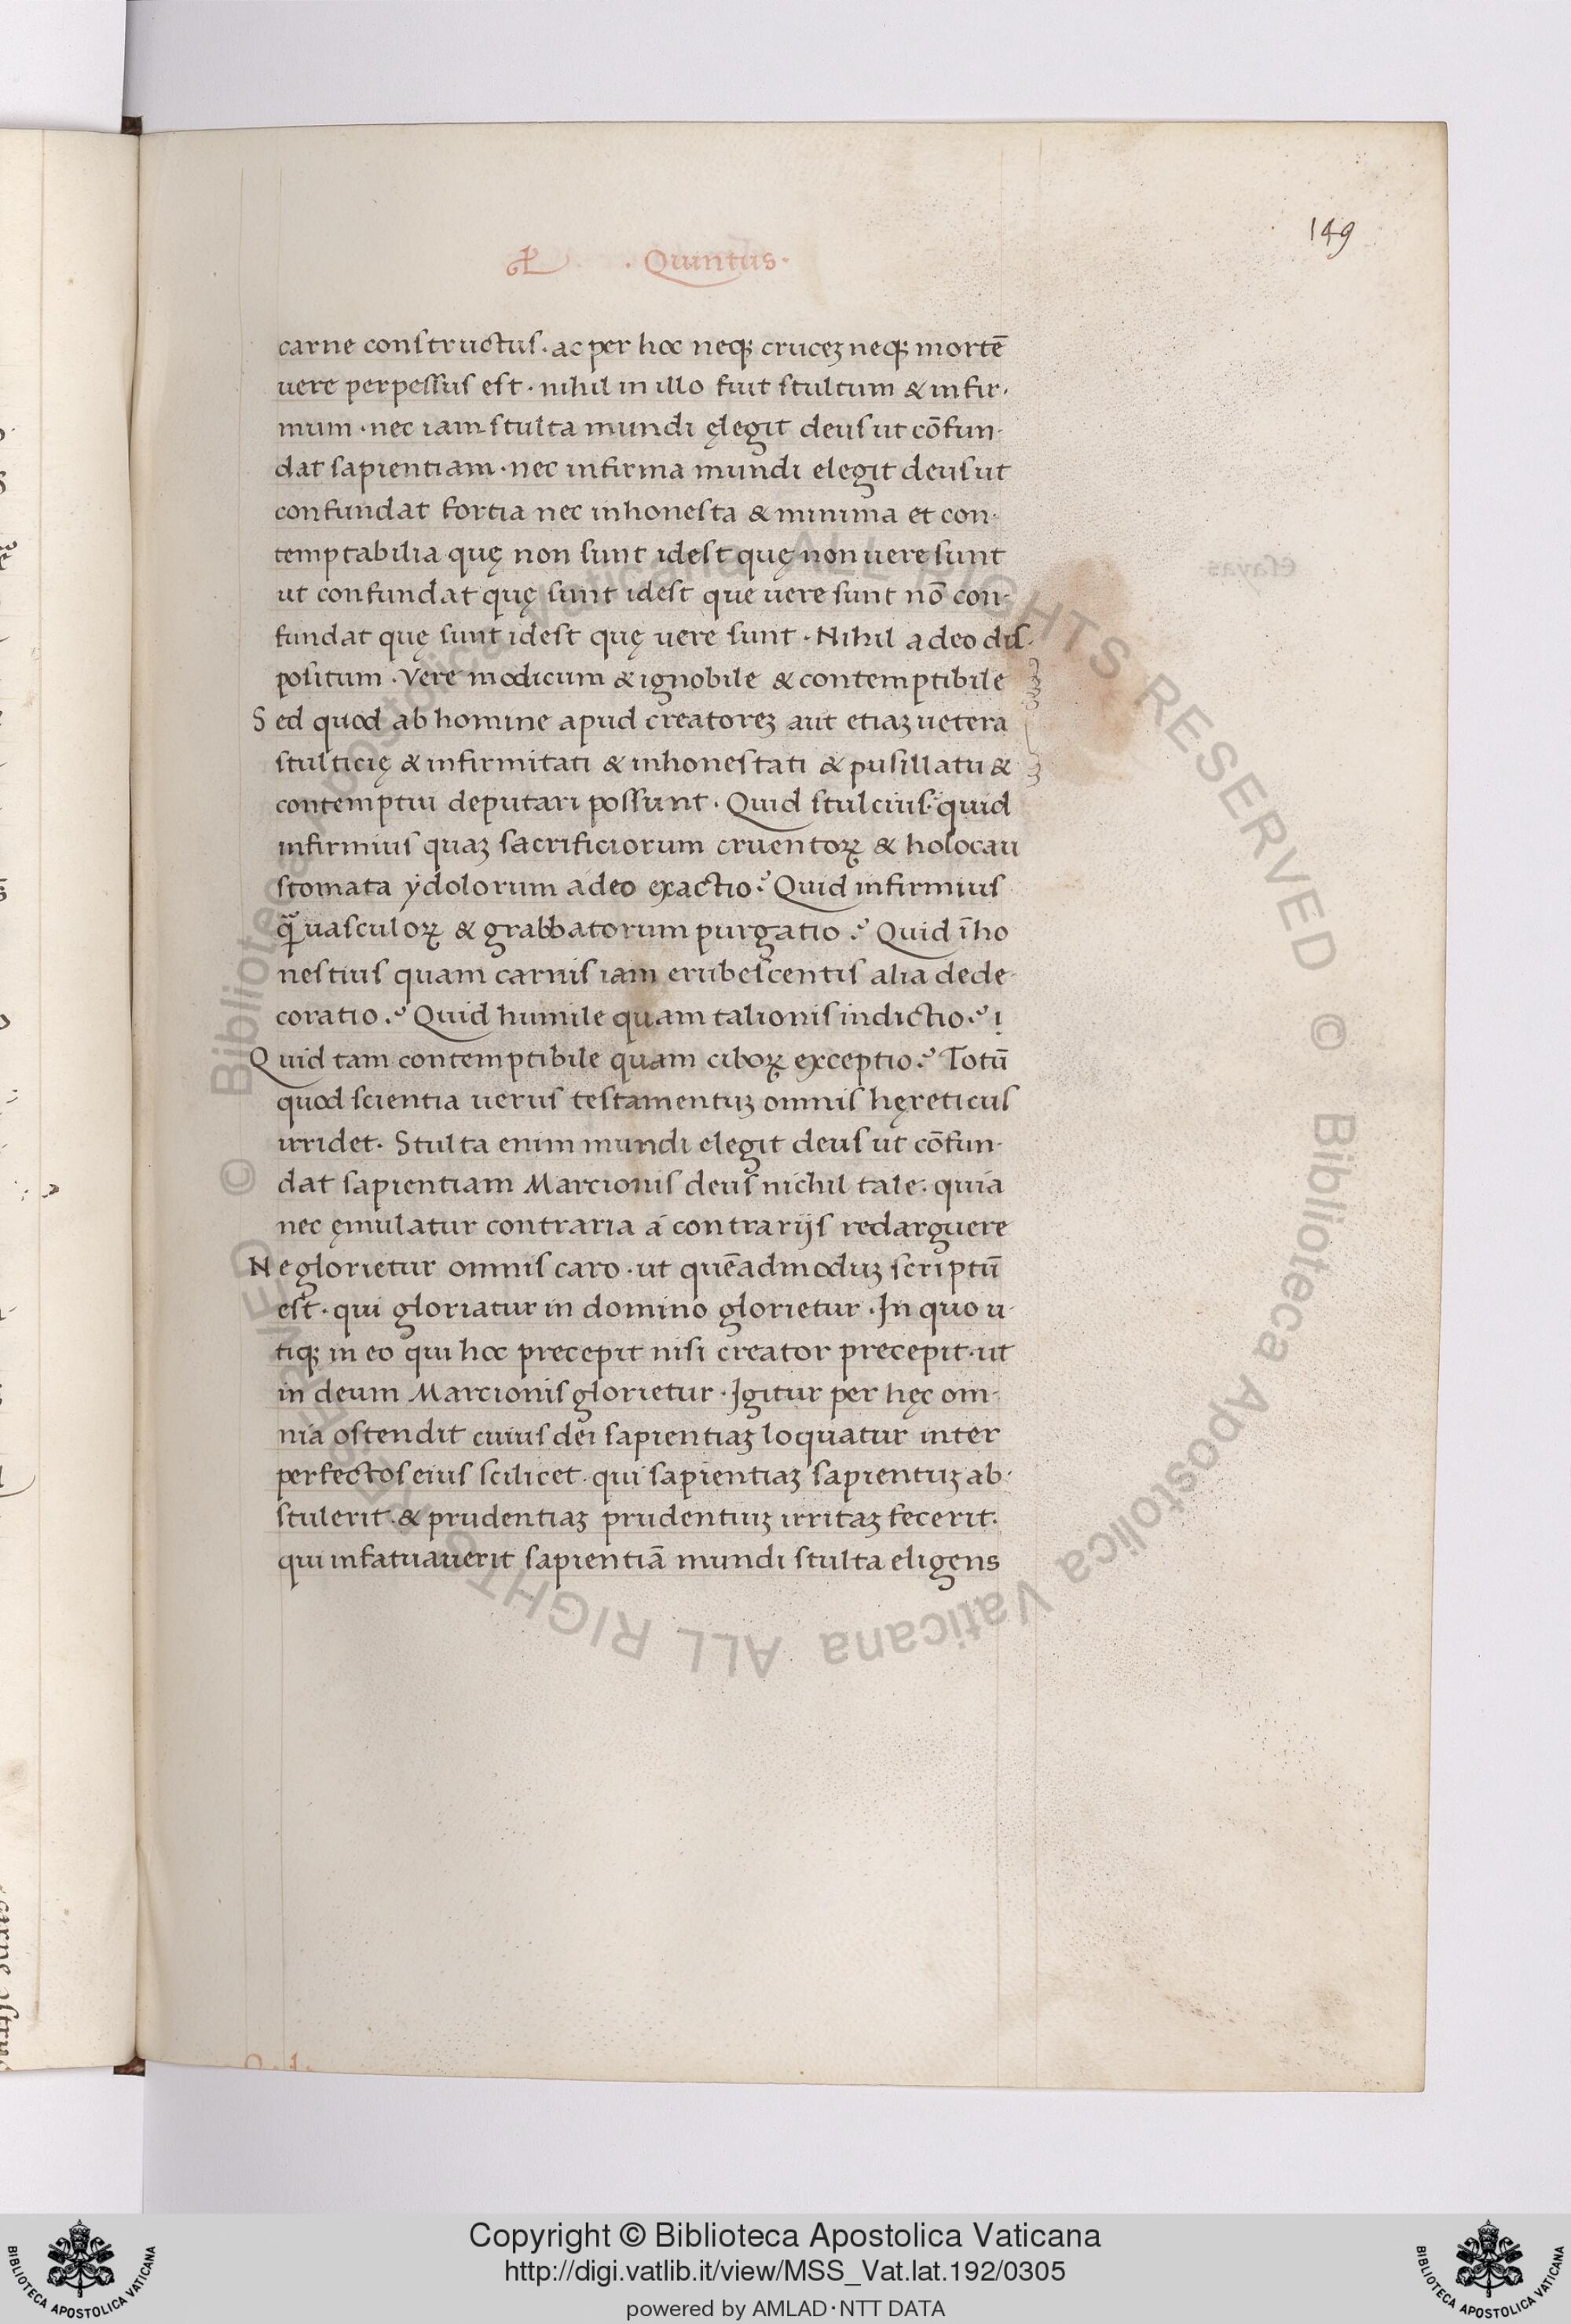 149
· Quintus ·
carne constructus · ac per hoc neqꝫ cruceꝫ neqꝫ mortē
uere perpessus est · nihil in illo fuit stultum & infir·
mum · nec iam stulta mundi ęlegit deus ut cōfun·
dat sapientiam · nec infirma mundi elegit deus ut
confundat fortia nec inhonesta & minima et con·
temptabilia quę non sunt idest quę non uere sunt
ut confundat quę sunt idest que uere sunt nō con·
fundat quę sunt idest quę uere sunt · Nihil a deo dis·
positum · Vere modicum & ignobile & contemptibile
Sed quod ab homine apud creatoreꝫ aut etiaꝫ uetera
stulticię & infirmitati & inhonestati & pusillatu &
contemptui deputari possunt · Quid stulcius · quid
infirmius quaꝫ sacrificiorum cruentoꝝ & holocau
stomata ydolorum a deo exactio? Quid infirmius
q̃ uasculoꝝ & grabbatorum purgatio? Quid īho
nestius quam carnis iam erubescentis alia dede·
coratio? Quid humile quam talionis indictio?
Quid tam contemptibile quam ciboꝝ exceptio? Totū
quod scientia uerus testamentuꝫ omnis hęreticus
irridet. Stulta enim mundi elegit deus ut cōfun·
dat sapientiam Marcionis deus nichil tale · quia
nec ęmulatur contraria á contrarijs redarguere
Ne glorietur omnis caro · ut quēadmoduꝫ scriptū
est · qui gloriatur in domino glorietur · In quo u·
tiqꝫ in eo qui hoc precepit nisi creator precepit · ut
in deum Marcionis glorietur · Igitur per hęc om·
nia ostendit cuius dei sapientiaꝫ loquatur inter
perfectos eius scilicet · qui sapientiaꝫ sapientuꝫ ab·
stulerit · & prudentiaꝫ prudentiuꝫ irritaꝫ fecerit.
qui infatuauerit sapientiā mundi stulta eligens
© Biblioteca Apostolica Vaticana ALL RIGHTS RESERVED
© Biblioteca Apostolica Vaticana ALL RIGHTS RESERVED
Copyright © Biblioteca Apostolica Vaticana
http://digi.vatlib.it/view/MSS_Vat.lat.192/0305
powered by AMLAD·NTT DATA
BIBLIOTECA APOSTOLICA VATICANA
BIBLIOTECA APOSTOLICA VATICANA